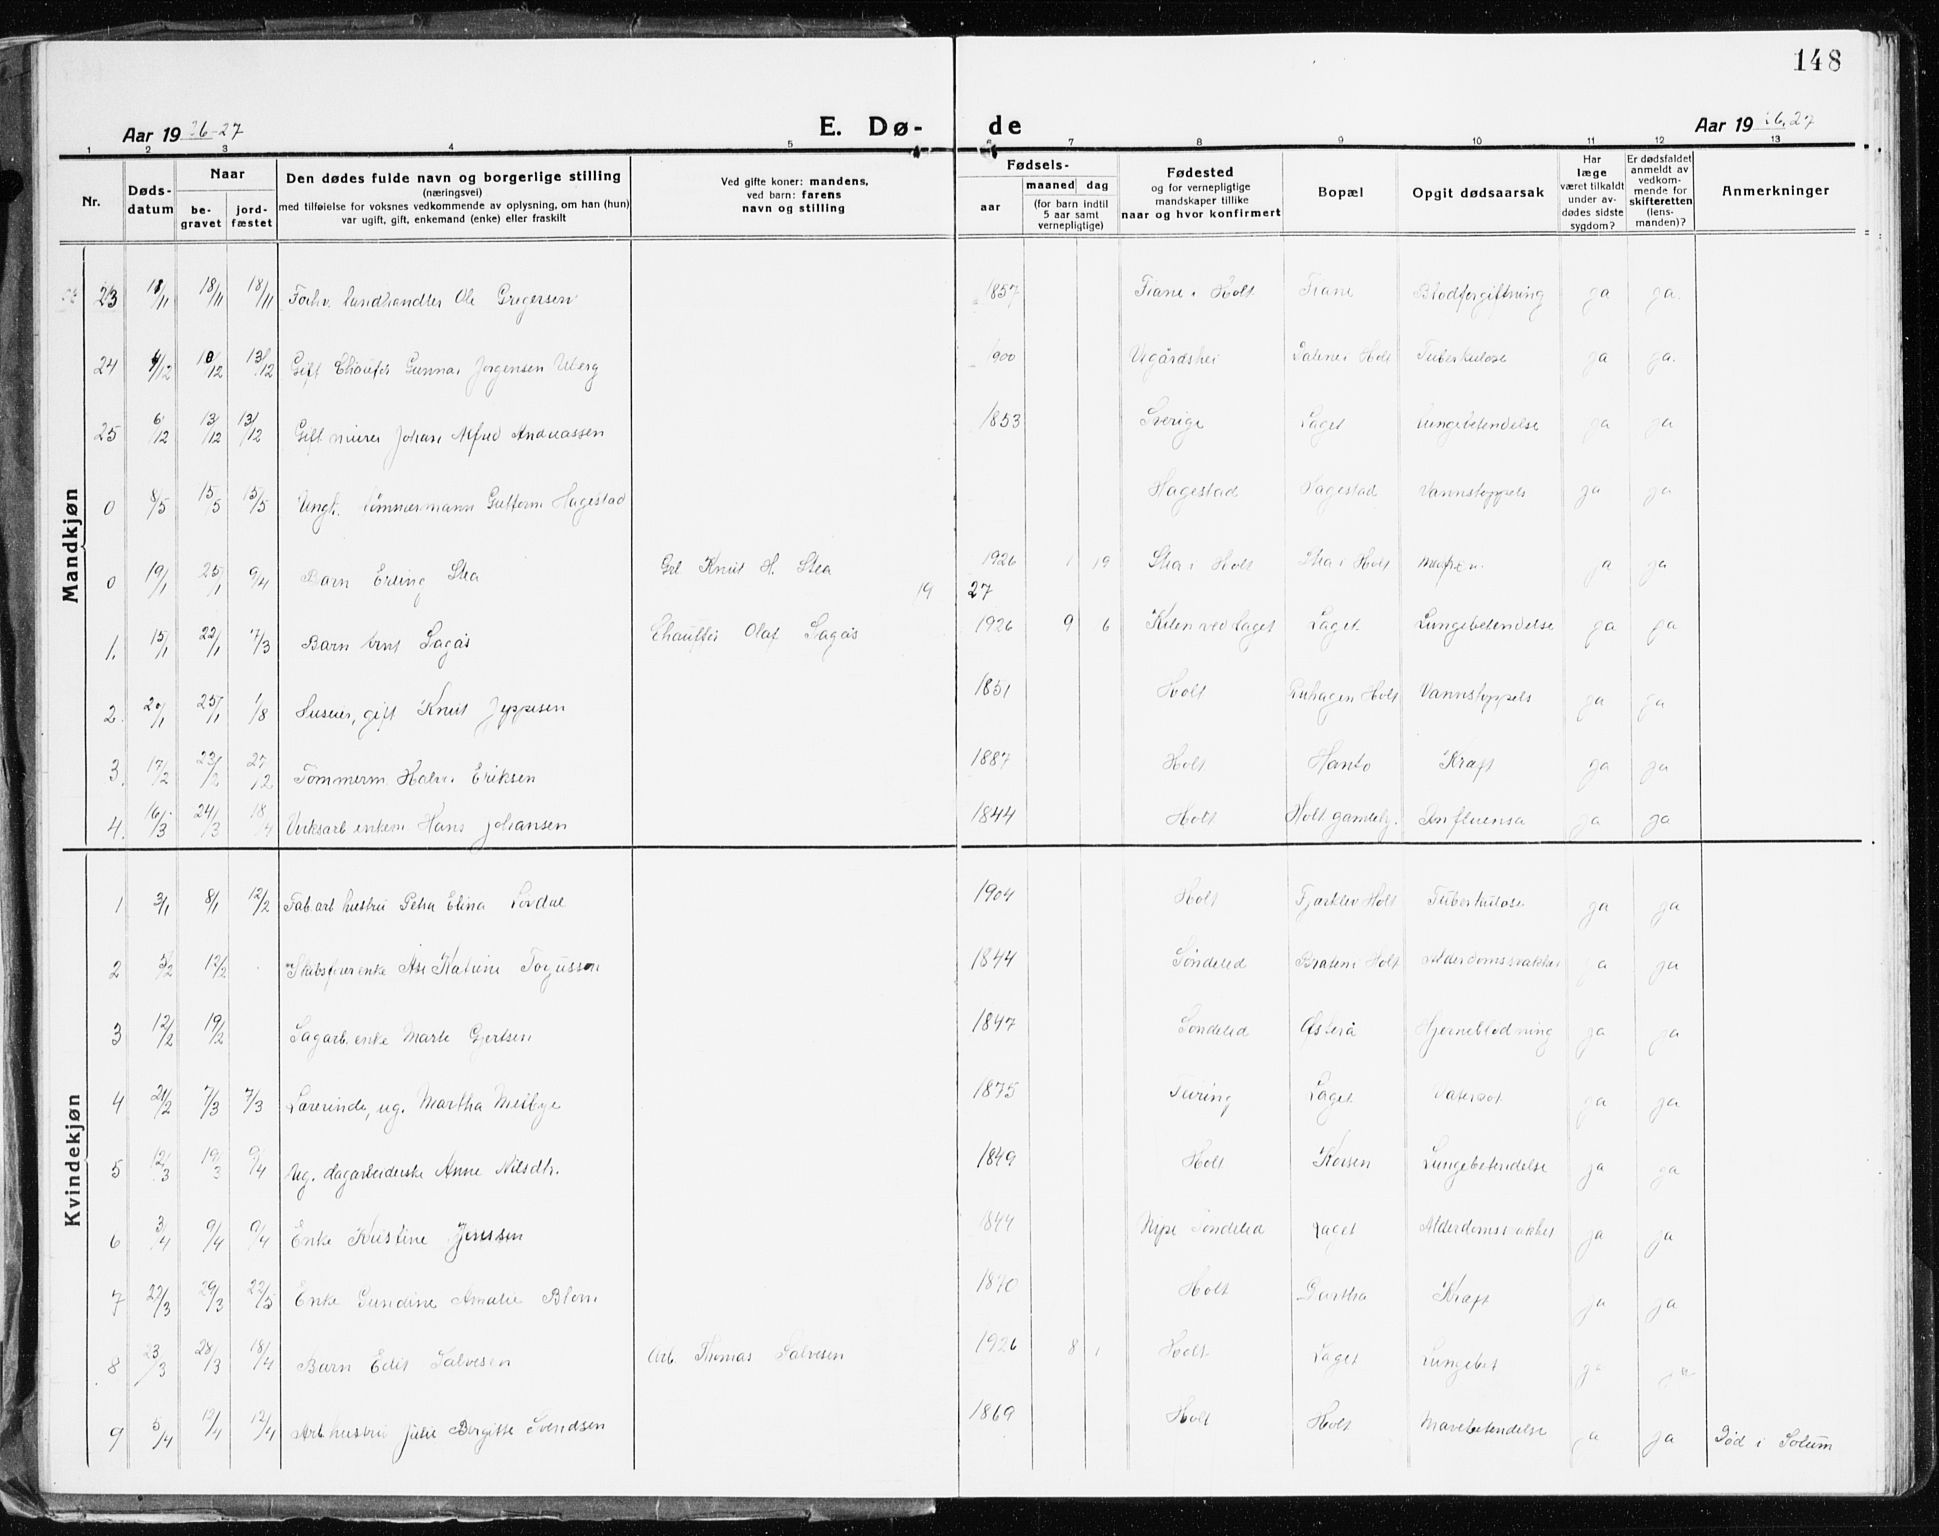 148
Aar 19 26-27 E. Dø- de Aar 19 26,27
1 2 3 4 5 6 7 8 9 10 11 12 13
Nr. Dødsdatum Naar begravet jordfæstet Den dødes fulde navn og borgerlige stilling (næringsvei) med tilføielse for voksnes vedkommende av oplysning, om han (hun) var ugift, gift, enkemand (enke) eller fraskilt Ved gifte koner: mandens, ved barn: farens navn og stilling Fødsels- aar maaned dag (for barn indtil 5 aar samt vernepligtige) Fødested og for vernepligtige mandskaper tillike naar og hvor konfirmert Bopæl Opgit dødsaarsak Har læge været tilkaldt under avdødes sidste sygdom? Er dødsfaldet anmeldt av vedkommende for skifteretten (lensmanden)? Anmerkninger
Mandkjøn
23 18/11 18/11 Forhv. landhandler Ole Gregersen 1857 Fiane i Holt Fiane Blodforgiftning ja ja.
24 13/12 Gift Chaufør Gunnar Jørgensen Uberg 1900 Vegårdshei Holt Tuberkulose ja ja.
25 6/12 13/12 13/12 Gift murer Johan Alfred Andreassen 1853 Sverige Laget Lungebetendelse ja ja
0 8/5 15/5 15/5 Ungk. tømmermann Guttorm Hagestad Hagestad Hagestad Vannstoppels ja ja
0 19/1 25/1 9/4 Barn Erling Stea Knut H. Stea 1926 1 19 Stea i Holt Stea i Holt ja ja
19 27
1. 15/1 22/1 7/3 Barn Arnt Lagås Chauffør Olaf Lagås 1926 9 6 Kilen ved Laget Laget Lungebetendelse ja ja
2. 20/1 25/1 1/8 Huseier, gift Knut Jeppesen 1851 Holt Holt Vannstoppels ja ja
3. 17/2 23/2 27/2 Tømmerm. Halvor Eriksen 1887 Holt Hanto Kræft ja ja
4. 16/3 24/3 18/4 Verksarb enkem Hans Johansen 1844 Holt Holt gamlehj. Influensa ja ja
Kvindekjøn
1 3/1 8/1 12/2 Fab arb hustru Petra Elina Løvdal 1904 Holt Holt Tuberkulose ja ja
2 5/2 12/2 Skibsfører enke Åse Katrine Torjussen 1844 Søndeled Bråten i Holt Alderdomssvakhet ja ja
3 12/2 19/2 Sagarb. enke Marte Gjertsen 1847 Søndeled Østerå Hjerneblødning ja ja
4 21/2 7/3 7/3 Lærerinde, ug. Martha Melbye 1875 Tvring Laget Vatersot ja ja
5 12/3 19/3 9/4 Ug. dagarbeiderske Anne Nilsdtr. 1849 Holt Lungebetendelse ja ja
6 3/4 9/4 9/4 Enke Kristine Jenssen 1844 Nipe Søndeled Laget Alderdomssvakhet ja ja
7 22/3 29/3 22/5 Enke Gundine Amalie Blom 1870 Holt Gartha Kræft ja ja
8 23/3 28/3 18/4 Barn Edit Salvesen Arb. Thomas Salvesen 1926 8 1 Holt Laget Lungebet ja ja
9 5/4 12/4 12/4 Arb hustru Julie Bergitte Svendsen 1869 Holt Holt Mavebetendelse ja ja Død i Solum